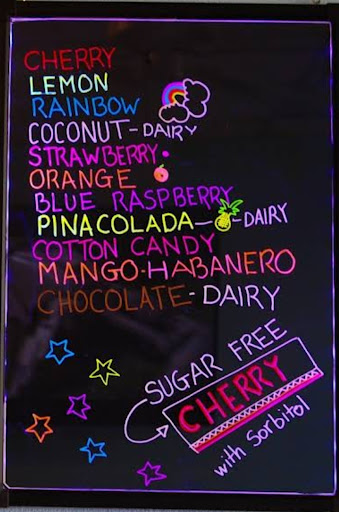 CHERRY
LEMON
RAINBOW
COCONUT - DAIRY
STRAWBERRY
ORANGE
BLUE RASPBERRY
PINACOLADA - DAIRY
COTTON CANDY
MANGO-HABANERO
CHOCOLATE - DAIRY
SUGAR FREE
CHERRY
with Sorbitol